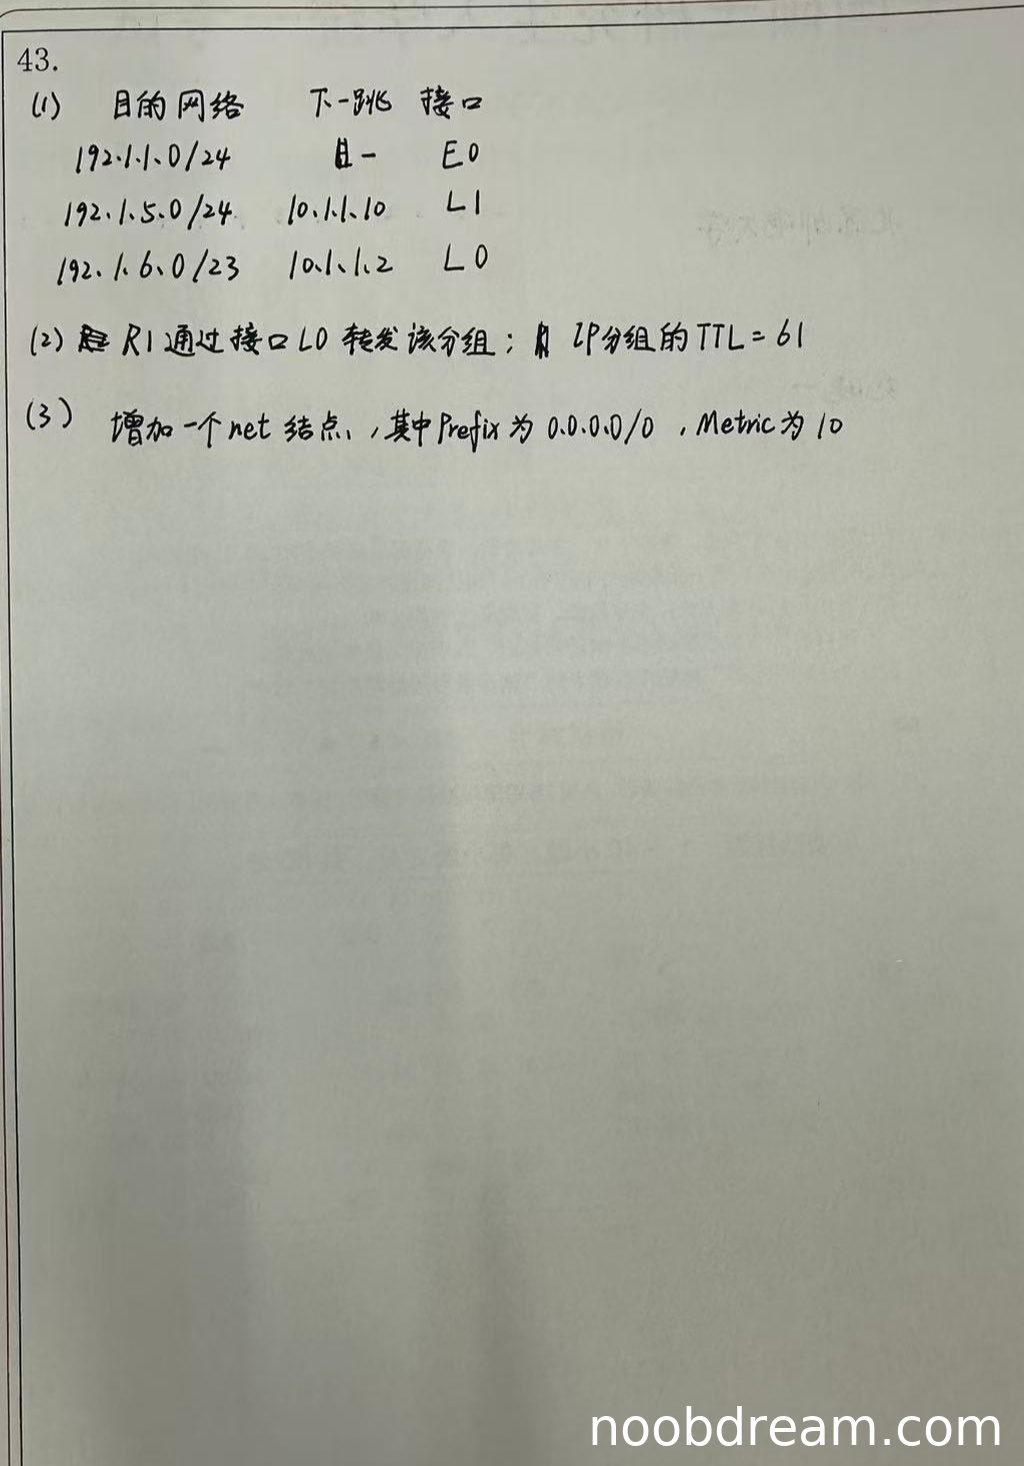 43.
(1) 目的网络 下一跳 接口
192.1.1.0/24 - E0
192.1.5.0/24 10.1.1.10 L1
192.1.6.0/23 10.1.1.2 L0
(2) R1通过接口L0 转发该分组; IP分组的TTL=61
(3) 增加一个net 结点, 其中Prefix为 0.0.0.0/0 , Metric为 10
noobdream.com